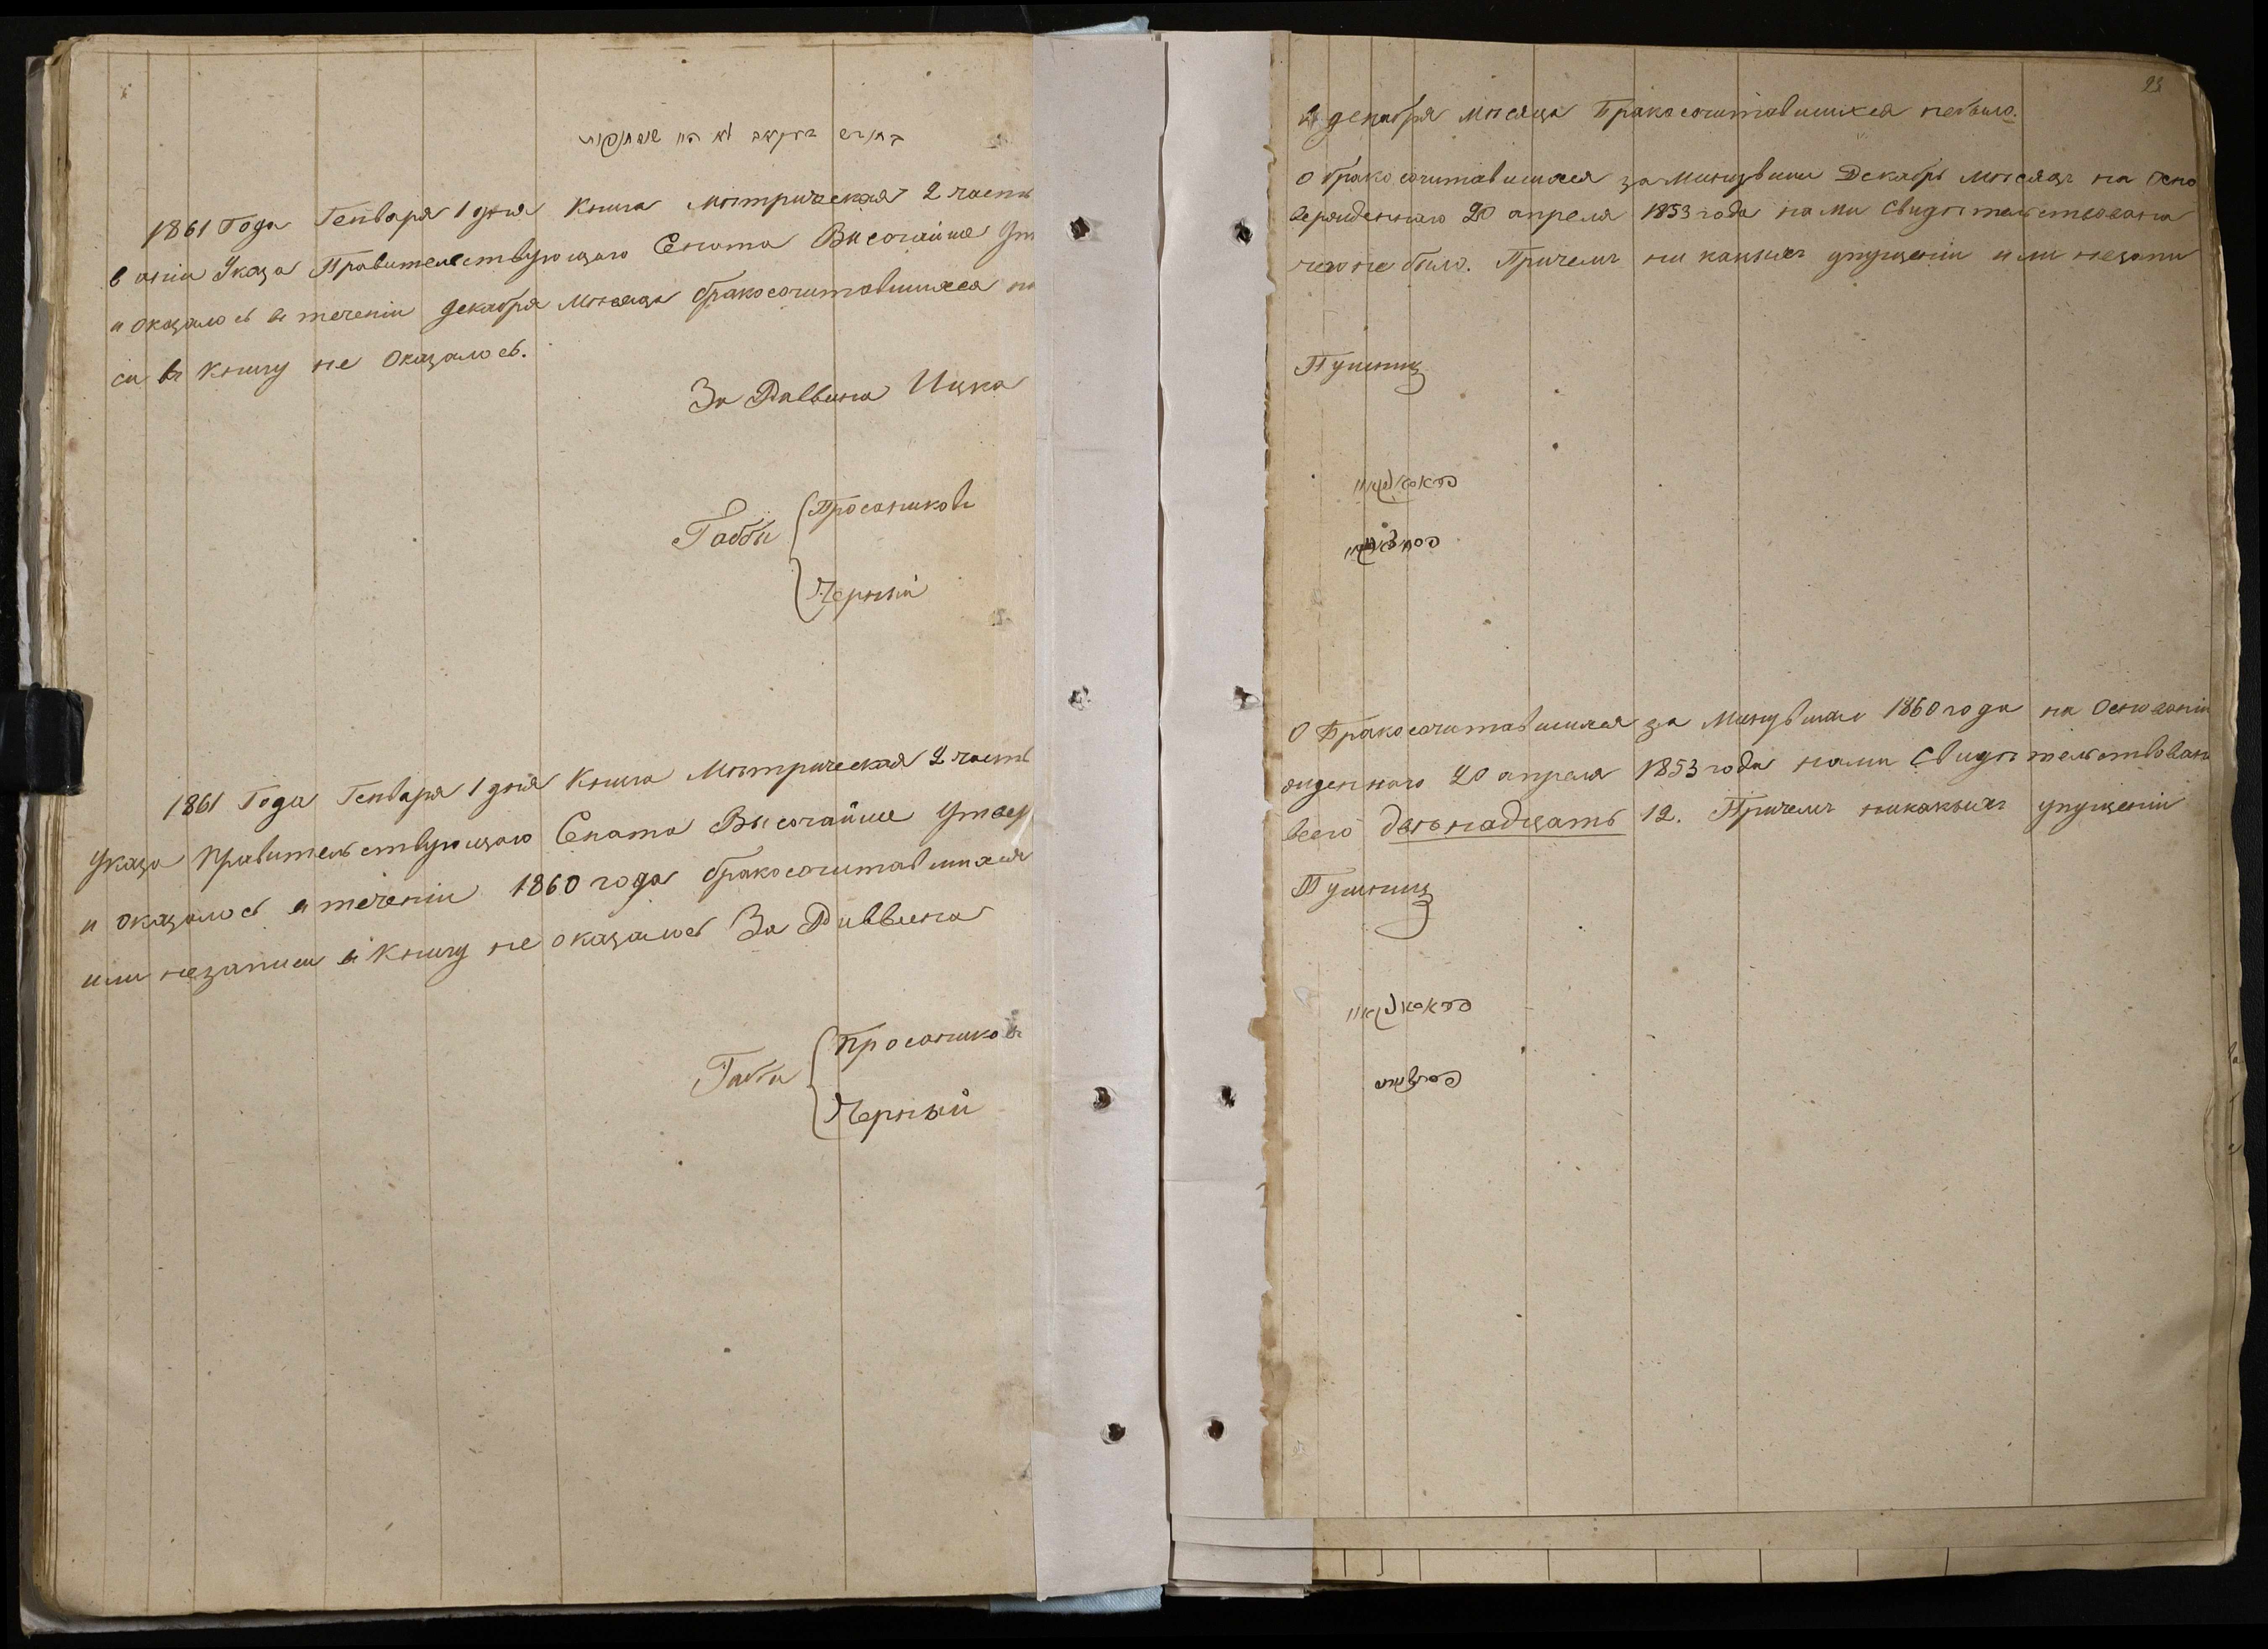 1861 Года Генваря 1 дня Книга Метрическая 2 часть
в ании Указа Правительствующаго Сената Высочайше Ут
и оказалось в течении декабря месяца бракосочитавшихся ни
си въ книгу не оказалось.
За Раввина Ицка
Габбы
Просаниковъ
Черный
1861 Года Генваря 1 дня Книга Метрическая 2 часть
Указа Правительствующаго Сената Высочайше Утвер
и оказалось в течении 1860 года бракосочитавшихся
или незаписи в книгу не оказалось За Раввина
Габбы
Просаниковъ
Черный
23
В декабря месяца Бракосочитавшихся небыло.
О бракосочитавшихся за минувши Декабрь месяцъ на Осно
вержденнаго 20 апреля 1853 года нами Свидетельствована
чего не было. Причемъ ни какихъ упущении или незапи
Пушниц
О Бракосочитавшихся за минувшаго 1860 года на Основании
жденнаго 20 апреля 1853 года нами Свидетельствован
всего двенадцать 12. Причемъ никакихъ упущении
Пушниц